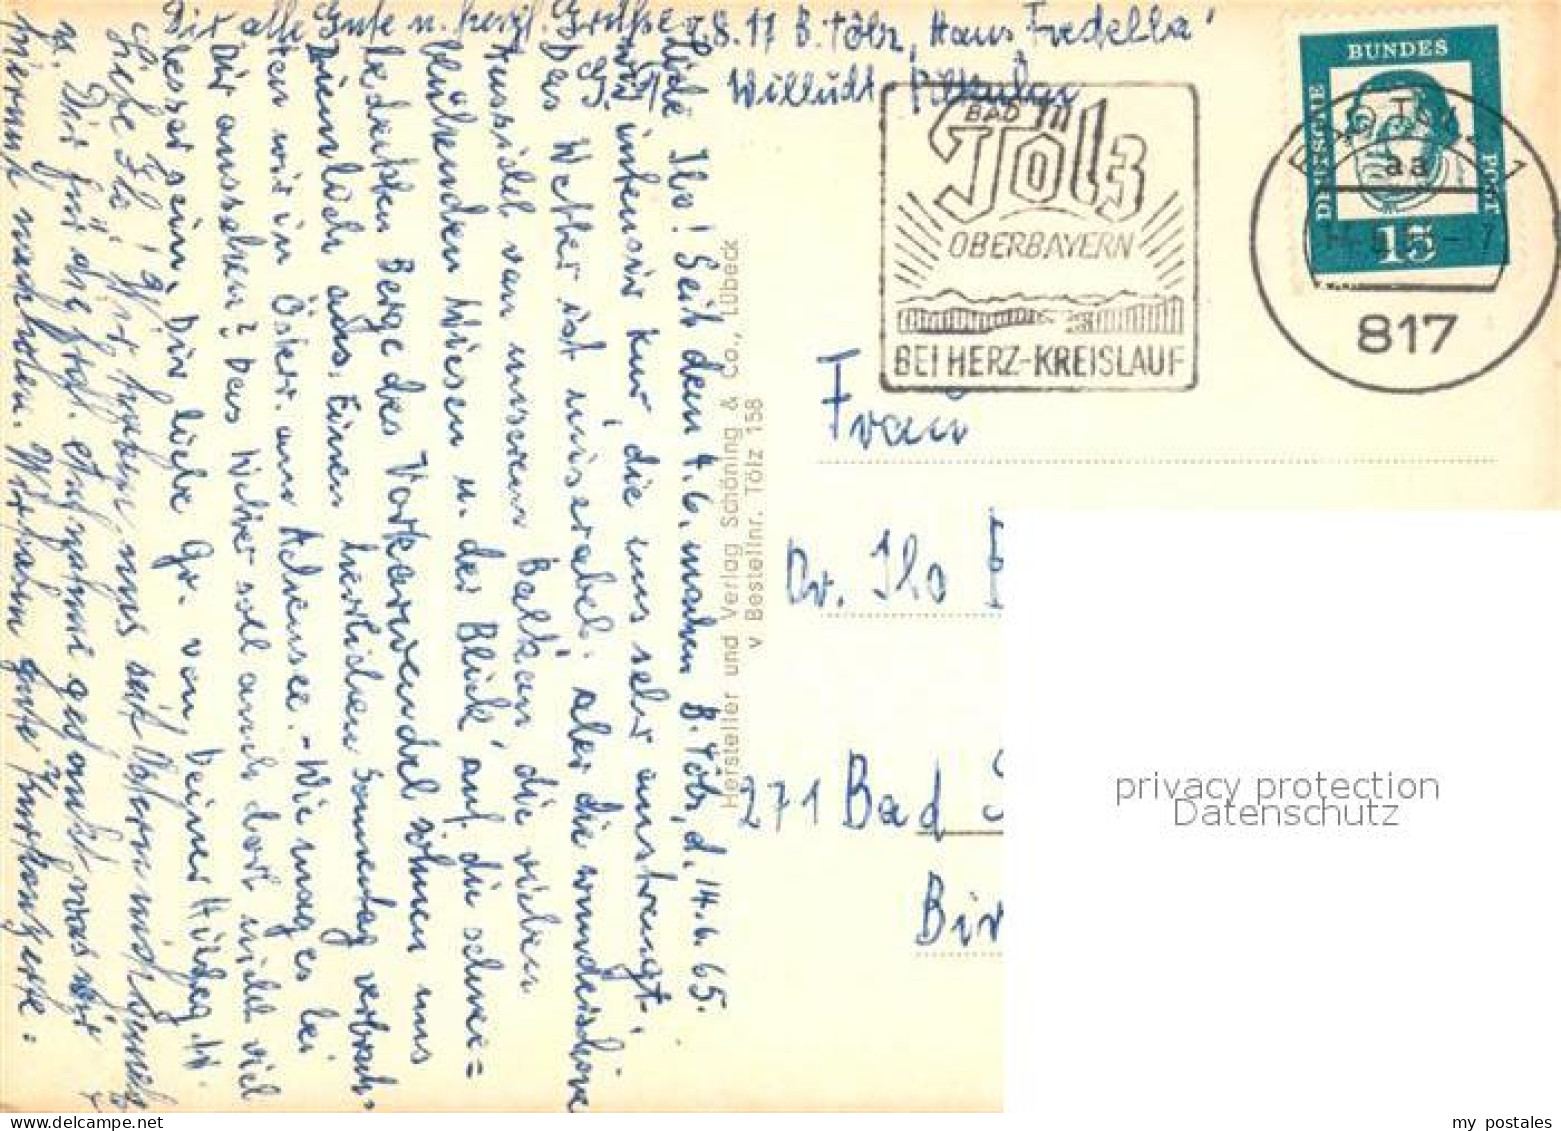 v.8.17 B. Tölz, Haus Fredella
BAD
Tölz
OBERBAYERN
BEI HERZ-KREISLAUF
DEUTSCHE
BUNDES
POST
15
aa
817
Frau
Dr. Ilo
271 Bad
Bir
privacy protection
Datenschutz
Hersteller und Verlag Schöning & Co., Lübeck
v Bestellnr. Tölz 158
B. Tölz, d. 14.6.65.
Liebe Ilo! Seit dem 4.6. machen
wir intensiv Kur, die uns sehr anstrengt.
Das Wetter ist miserabel, aber die wunderschöne
Aussicht von unserem Balkon, die vielen
blühenden Wiesen u. der Blick auf die schnee=
bedeckten Berge des Vorkarwendel söhnen uns
ziemlich aus. Einen herrlichen Sonnentag verbrach-
ten wir in Österr. am Achensee. - Wie mag es bei
Dir aussehen? Das Wetter soll auch dort nicht viel
besser sein. Dir liebe Gr. von Deiner
Liebe Ilo! Wir haben uns seit Ostern nicht
u. Dir für die
hiermit nachholen.
Dir alle Gute u. herzl. Grüße
my postales